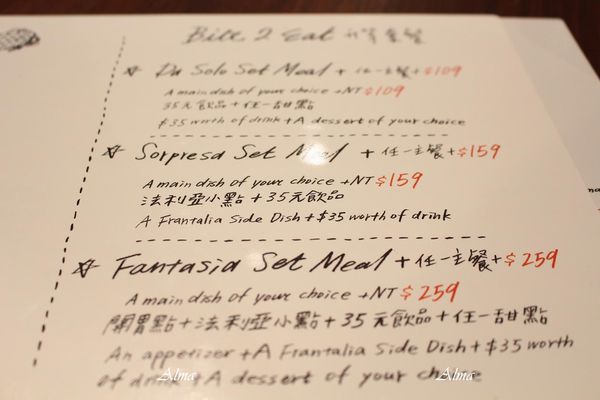 Bite 2 Eat
☆ Da Solo Set Meal + 任一主餐 + $109
A main dish of your choice +NT $109
35元飲品 + 任一甜點
$35 worth of drink + A dessert of your choice
☆ Sorpresa Set Meal + 任一主餐 + $159
A main dish of your choice +NT $159
法利亞小點 + 35元飲品
A Frantalia Side Dish + $35 worth of drink
☆ Fantasia Set Meal + 任一主餐 + $259
A main dish of your choice +NT $259
開胃點 + 法利亞小點 + 35元飲品 + 任一甜點
An appetizer + A Frantalia Side Dish + $35 worth
of drink + A dessert of your choice
Alma
Alma